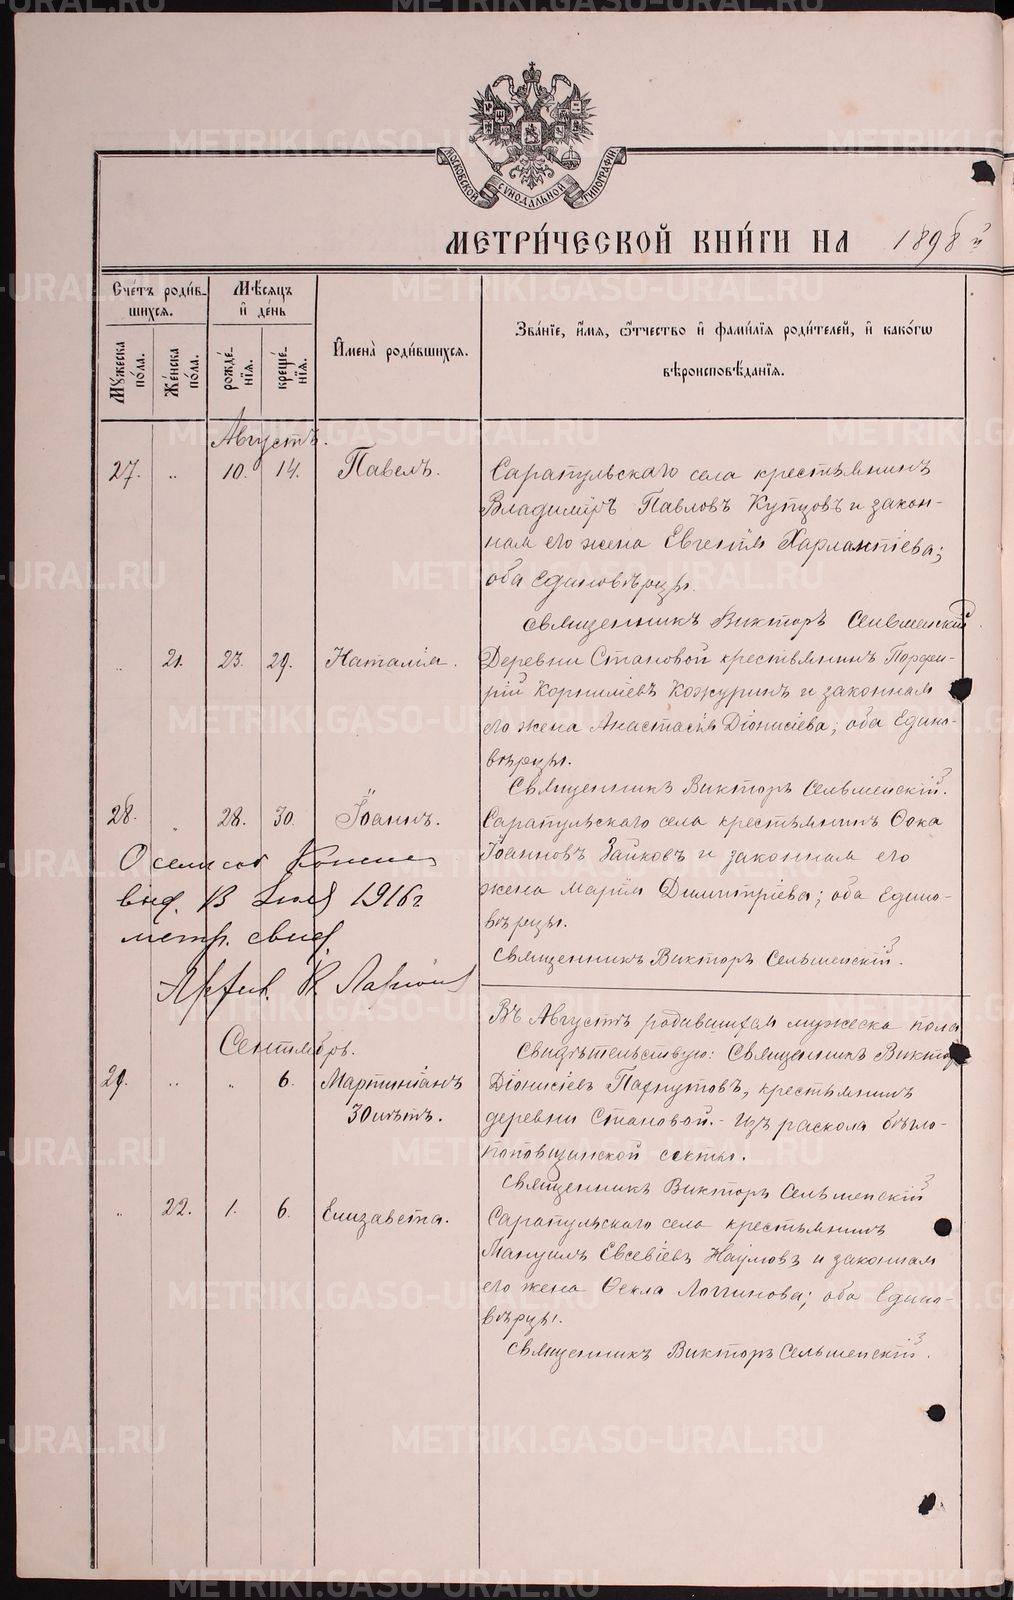 МОСКОВСКОЙ СУНОДАЛЬНОЙ ТИПОГРАФІИ
МЕТРИ́ЧЕСКОЙ КНИ́ГИ НА 1898й
Сче́тъ роди́в-
шихся.
Мꙋ́жеска по́ла.
Же́нска по́ла.
Мѣ́сяцъ
и̂ де́нь
рожде́-
нїя.
креще́-
нїя.
И҆мена̀ роди́вшихся.
Зва́нїе, и҆́мя, ѻ҆́тчество и҆ фами́лїя роди́телей, и҆ како́гѡ
вѣроисповѣ́данїя.
Августъ.
27. „ 10. 14. Павелъ.
Сарапульскаго села крестьянинъ
Владиміръ Павловъ Купцовъ и закон-
ная его жена Евгенія Харлампіева;
оба Единовѣрцы.
Священникъ Викторъ Сельменскій.
„ 21. 23. 29. Наталія.
Деревни Становой крестьянинъ Порфи-
рій Корниліевъ Кожуринъ и законная
его жена Анастасія Діонисіева; оба Едино-
вѣрцы.
Священникъ Викторъ Сельменскій.
28. „ 28. 30. Іоаннъ.
Сарапульскаго села крестьянинъ Ѳока
Іоанновъ Зайковъ и законная его
жена Марія Димитріева; оба Едино-
вѣрцы.
Священникъ Викторъ Сельменскій.
выд. В 1916г
метр. свид.
Въ Августѣ родившагося мужеска пола
Сентябрь.
Свидѣтельствую: Священникъ Виктор
29. „ „ 6. Мартиніанъ
30 лѣтъ.
Діонисіевъ Пафнутовъ, крестьянинъ
деревни Становой. - Изъ раскола бѣгло-
поповщинской секты.
Священникъ Викторъ Сельменскій
„ 22. 1. 6. Елизавета.
Сарапульскаго села крестьянинъ
Мануилъ Евсевіевъ Наумовъ и законная
его жена Ѳекла Логгинова; оба Едино-
вѣрцы.
Священникъ Викторъ Сельменскій.
METRIKI.GASO-URAL.RU